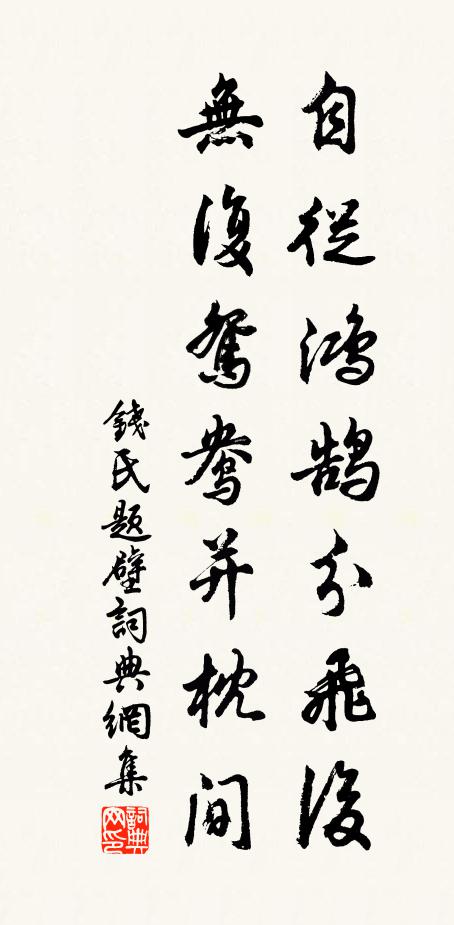 自從鴻鵠分飛後
無復鴛鴦并枕间
錢氏題壁詞典網集
詞典
网印